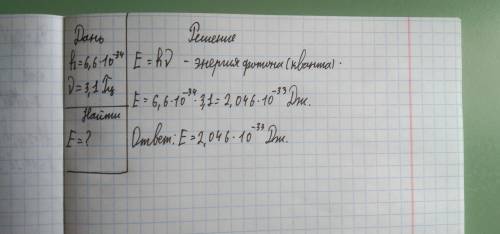 Дано
h=6,6·10⁻³⁴
ν=3,1 Гц
Найти
E=?
Решение
E=hν - энергия фотона (кванта).
E=6,6·10⁻³⁴·3,1=2,046·10⁻³³ Дж.
Ответ: E=2,046·10⁻³³ Дж.